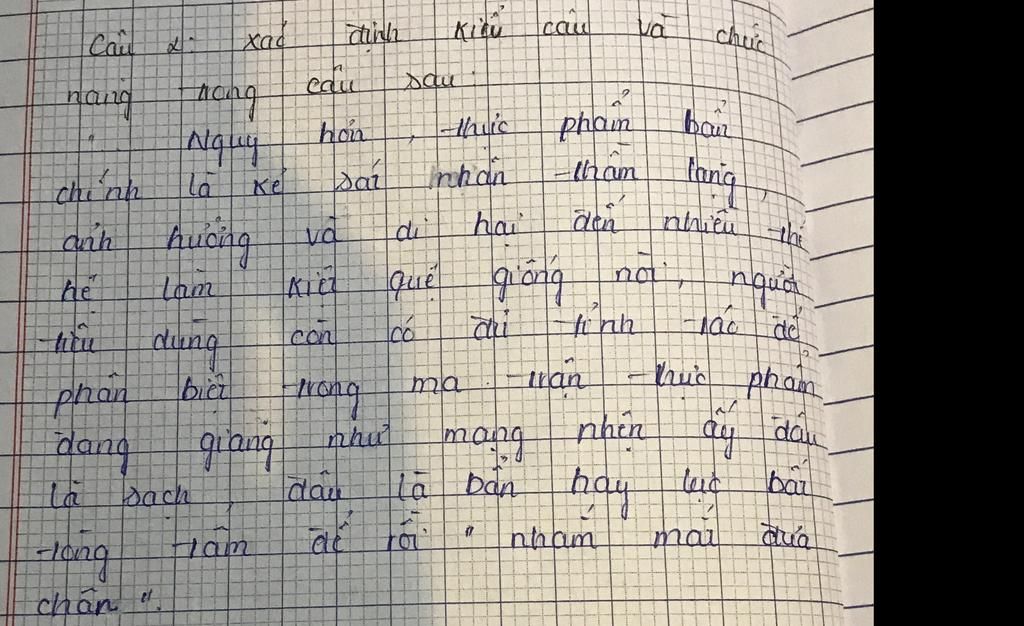 Câu 2: xác định kiểu câu và chức
năng trong câu sau:
" Nguy hơn, thực phẩm bẩn
chính là kẻ sát nhân thầm lặng,
ảnh hưởng và di hại đến nhiều thế
hệ làm kiệt quệ giống nòi, người
tiêu dùng còn có đủ tỉnh táo để
phân biệt trong ma trận thực phẩm
đang giăng như mạng nhện ấy đâu
là sạch, đâu là bẩn hay lực bất
tòng tâm để rồi " nhắm mắt đưa
chân ".